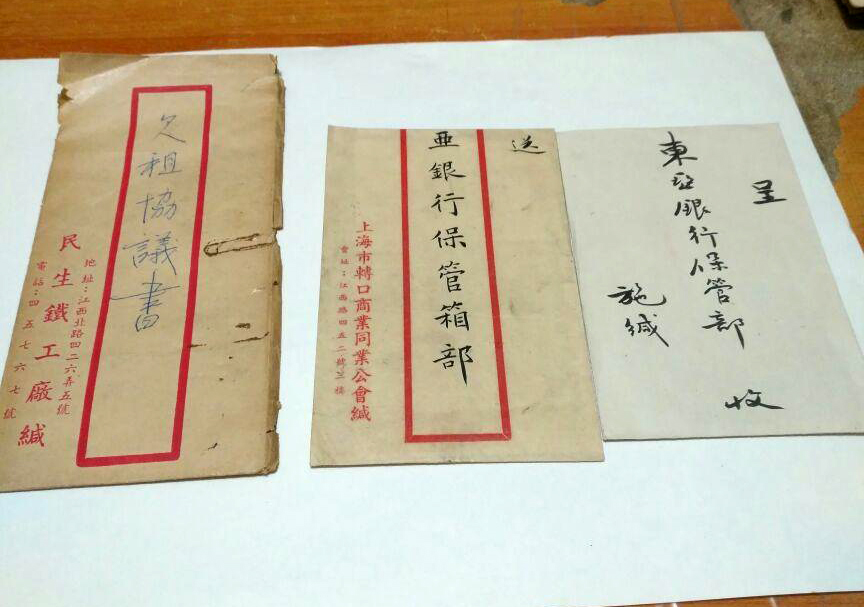 欠租協議書
地址：江西北路四二六弄五號
民生鐵工廠緘
電話：四五七六七號
送
亜銀行保管箱部
上海市轉口商業同業公會緘
會址：江西路四五二號三樓
呈
東亞銀行保管部
收
施緘